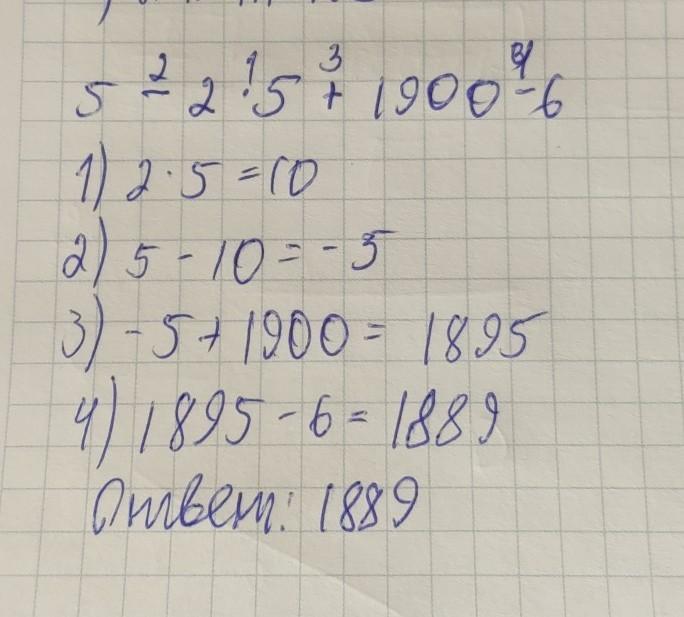 2 1 3 4
5 - 2 · 5 + 1900 - 6
1) 2 · 5 = 10
2) 5 - 10 = - 5
3) - 5 + 1900 = 1895
4) 1895 - 6 = 1889
Ответ: 1889